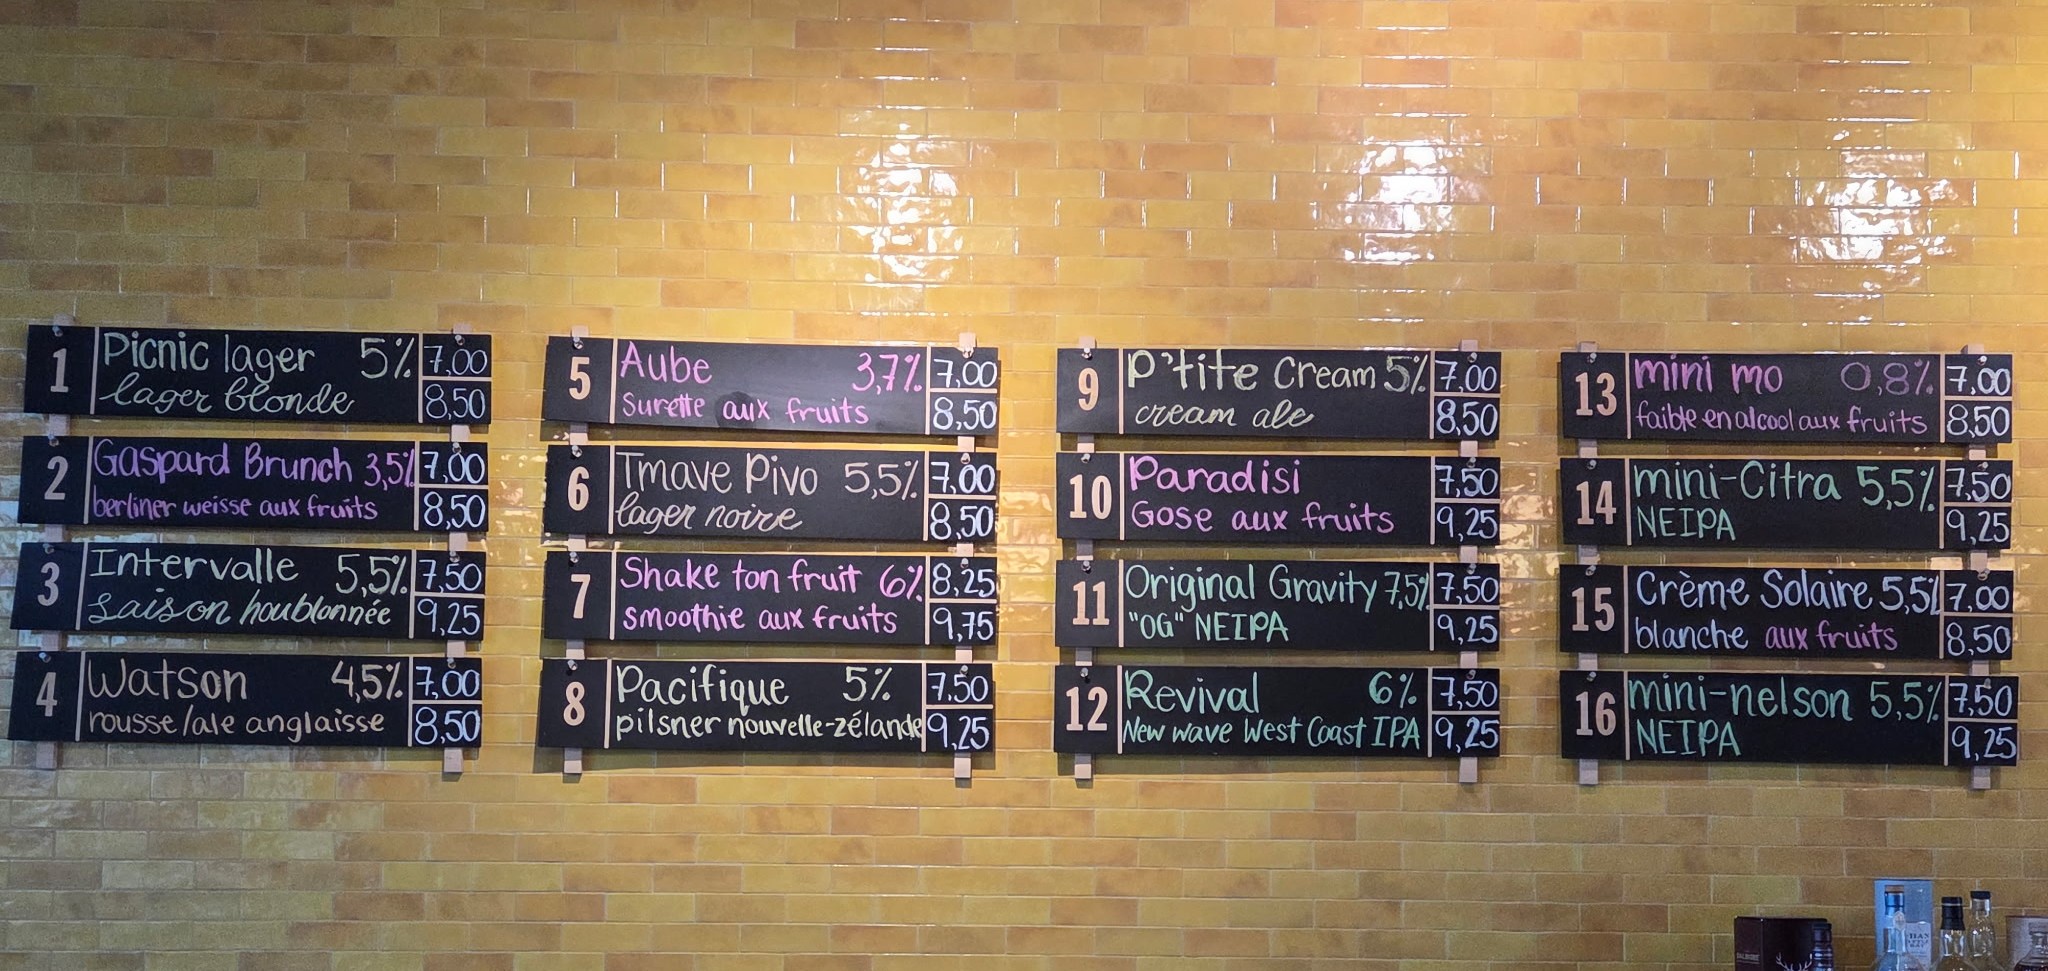 1 Picnic lager 5% 7,00
lager blonde 8,50
2 Gaspard Brunch 3,5% 7,00
berliner weisse aux fruits 8,50
3 Intervalle 5,5% 7,50
saison houblonnée 9,25
4 Watson 4,5% 7,00
rousse/ale anglaisse 8,50
5 Aube 3,7% 7,00
surette aux fruits 8,50
6 Tmave Pivo 5,5% 7,00
lager noire 8,50
7 Shake ton fruit 6% 8,25
smoothie aux fruits 9,75
8 Pacifique 5% 7.50
pilsner nouvelle-zélande 9,25
9 P'tite Cream 5% 7,00
cream ale 8,50
10 Paradisi 7,50
Gose aux fruits 9,25
11 Original Gravity 7,5% 7,50
"OG" NEIPA 9,25
12 Revival 6% 7,50
New wave West Coast IPA 9,25
13 mini mo 0,8% 7,00
faible en alcool aux fruits 8,50
14 mini-Citra 5,5% 7,50
NEIPA 9,25
15 Crème Solaire 5,5% 7,00
blanche aux fruits 8,50
16 mini-nelson 5,5% 7,50
NEIPA 9,25